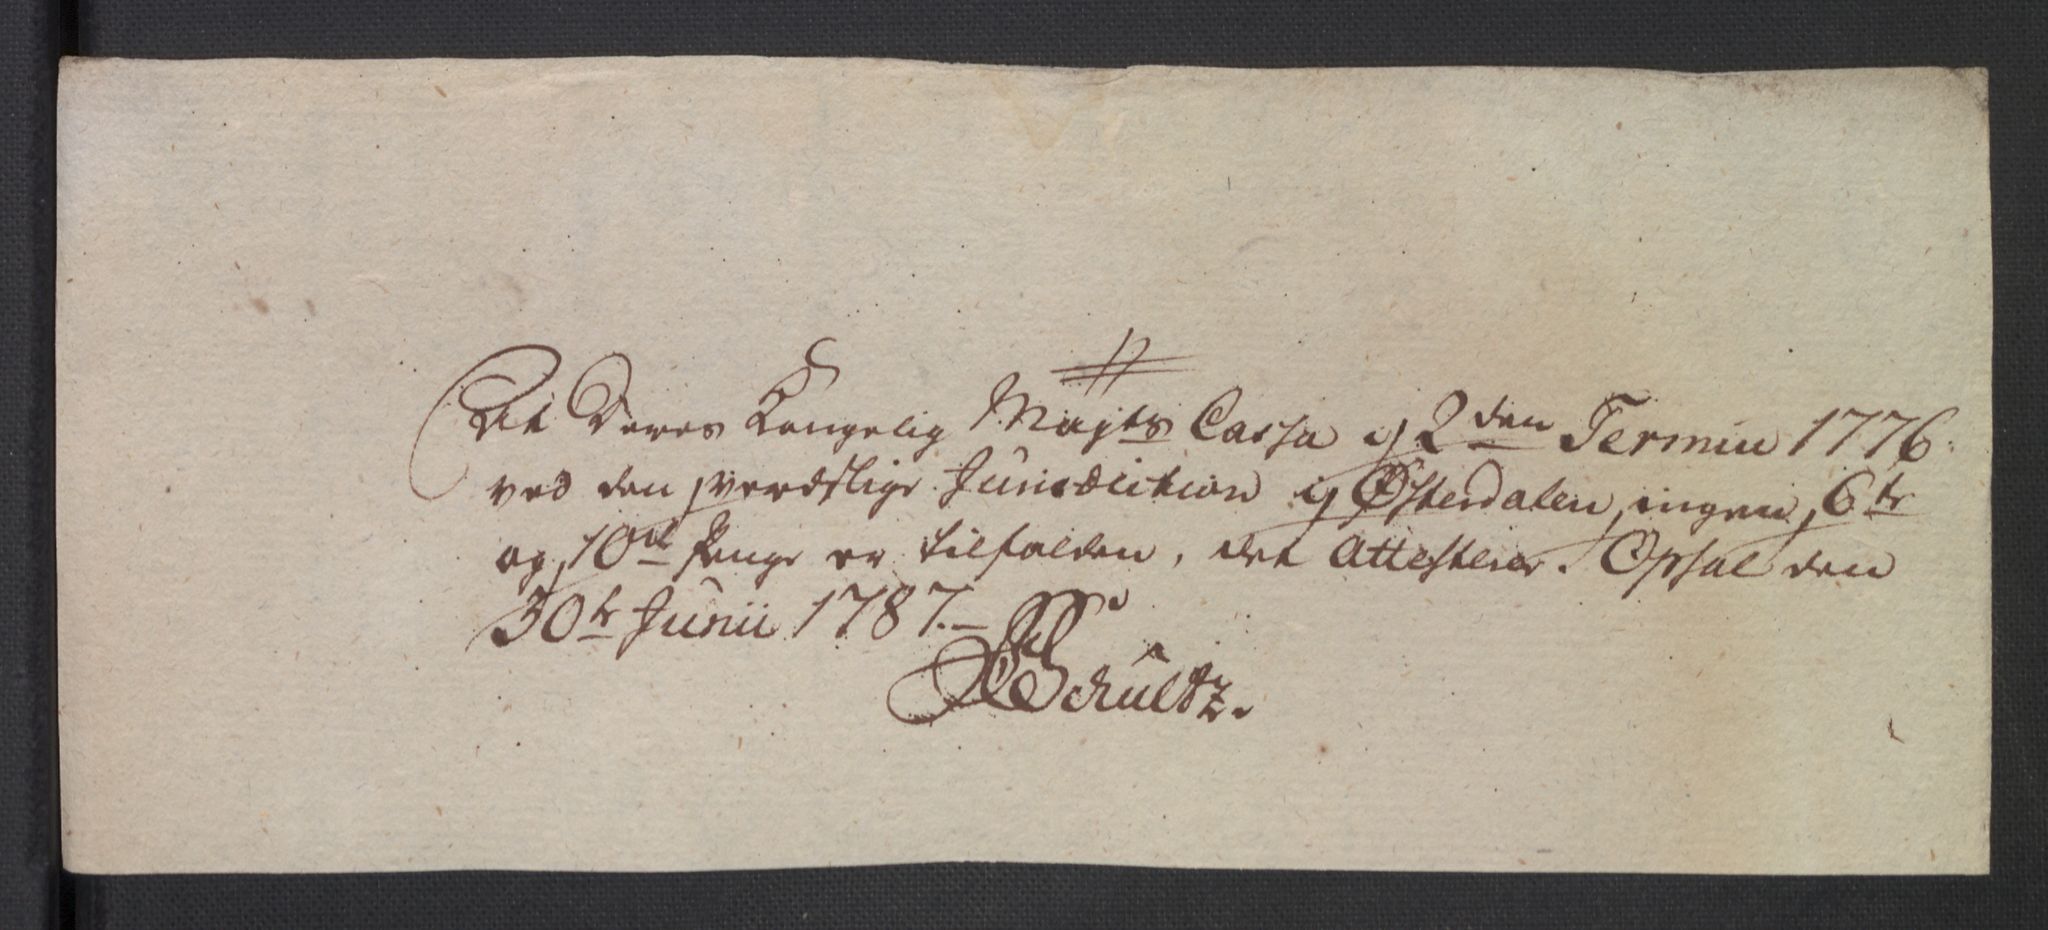 At Deres Kongelig Maÿts Cassa i 2den Termin 1776
ved den verdslige Jurisdiction i Østerdalen, ingen 6te
og 10de Penge er tilfalden, det Attesterer. Opsal den
30te Junii 1787.
Schultz.